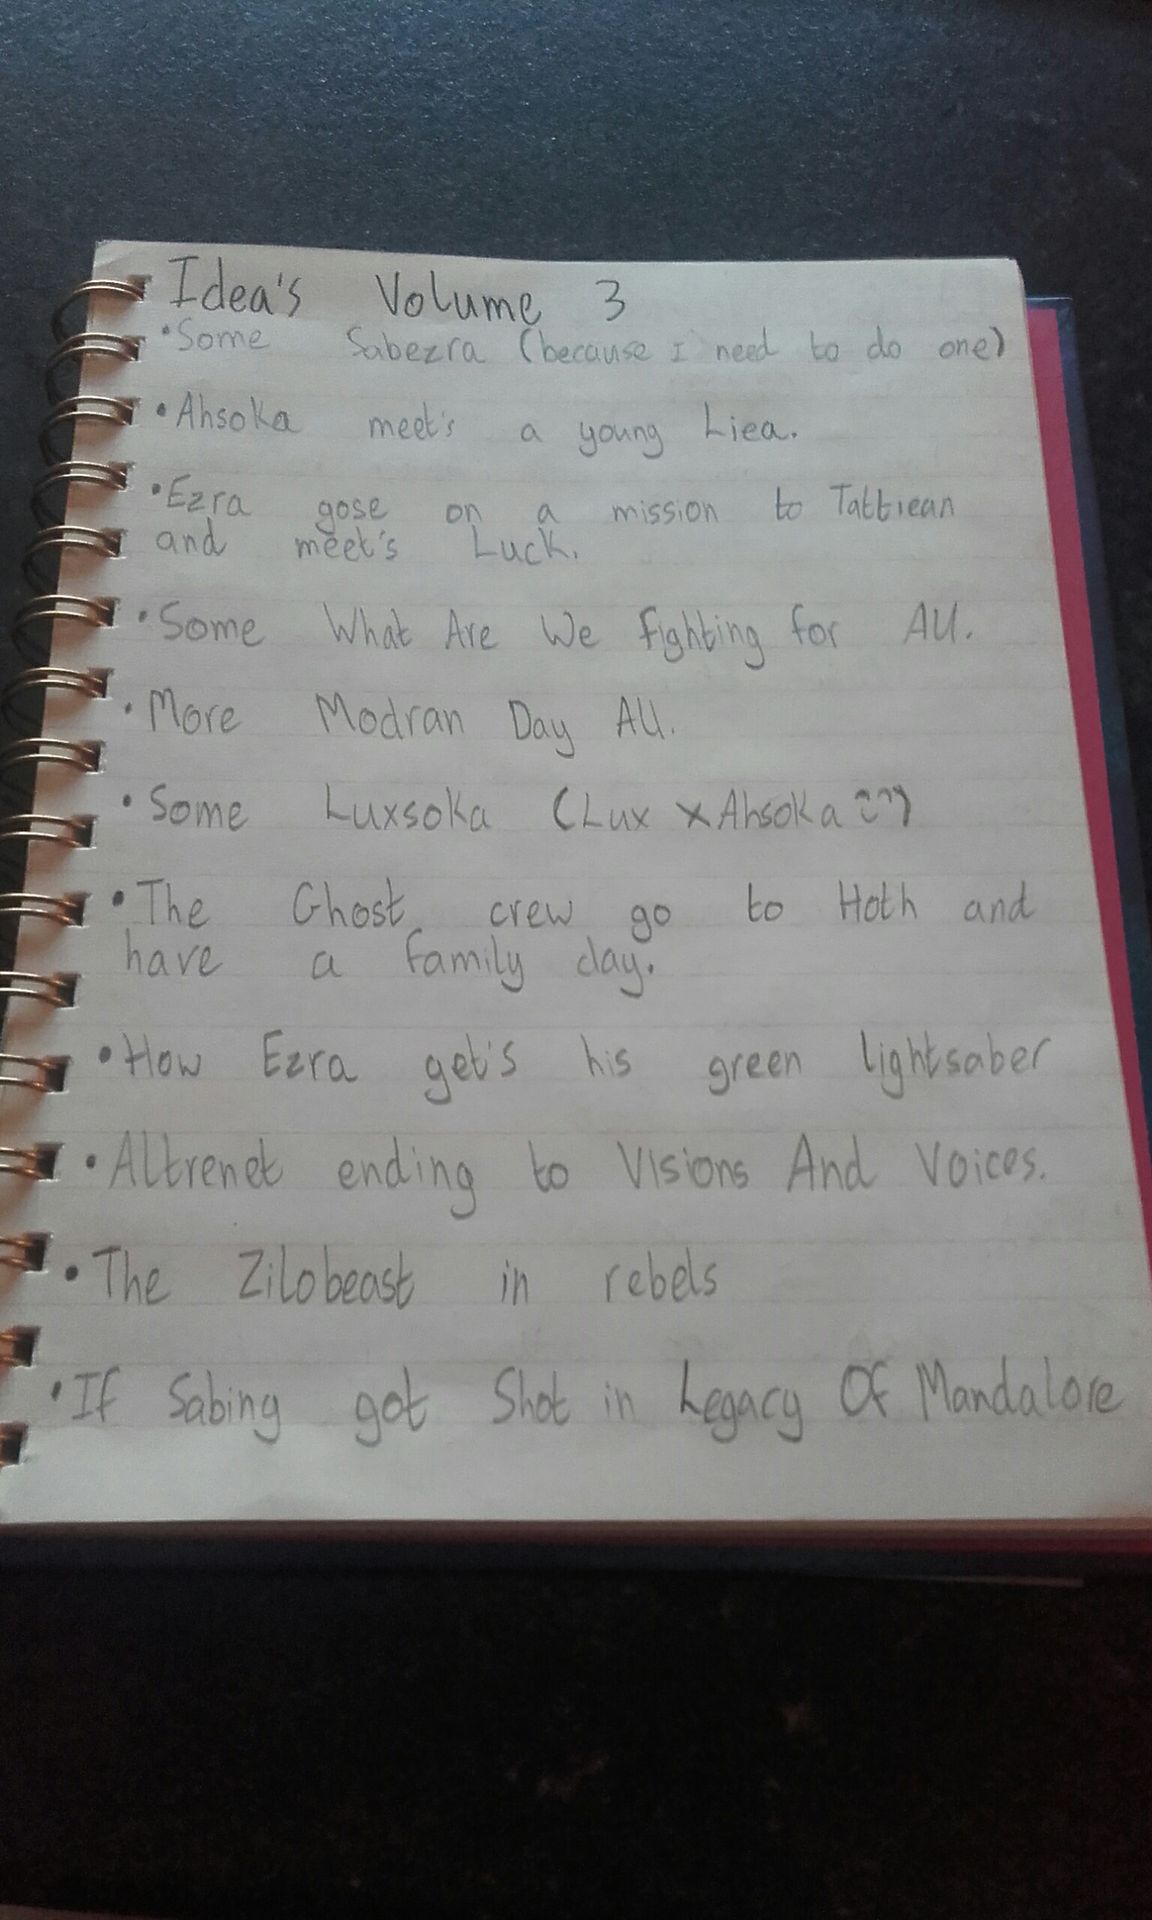 Idea's Volume 3
•Some Sabezra (because I need to do one)
•Ahsoka meet's a young Liea.
•Ezra gose on a mission to Tattiean
and meet's Luck.
•Some What Are We fighting for AU.
•More Modran Day AU.
•Some Luxsoka (Lux x Ahsoka
•The Ghost crew go to Hoth and
have a family day.
•How Ezra get's his green lightsaber
•Altrenet ending to Visions And Voices.
•The Zilobeast in rebels
•If Sabing got Shot in Legacy Of Mandalore